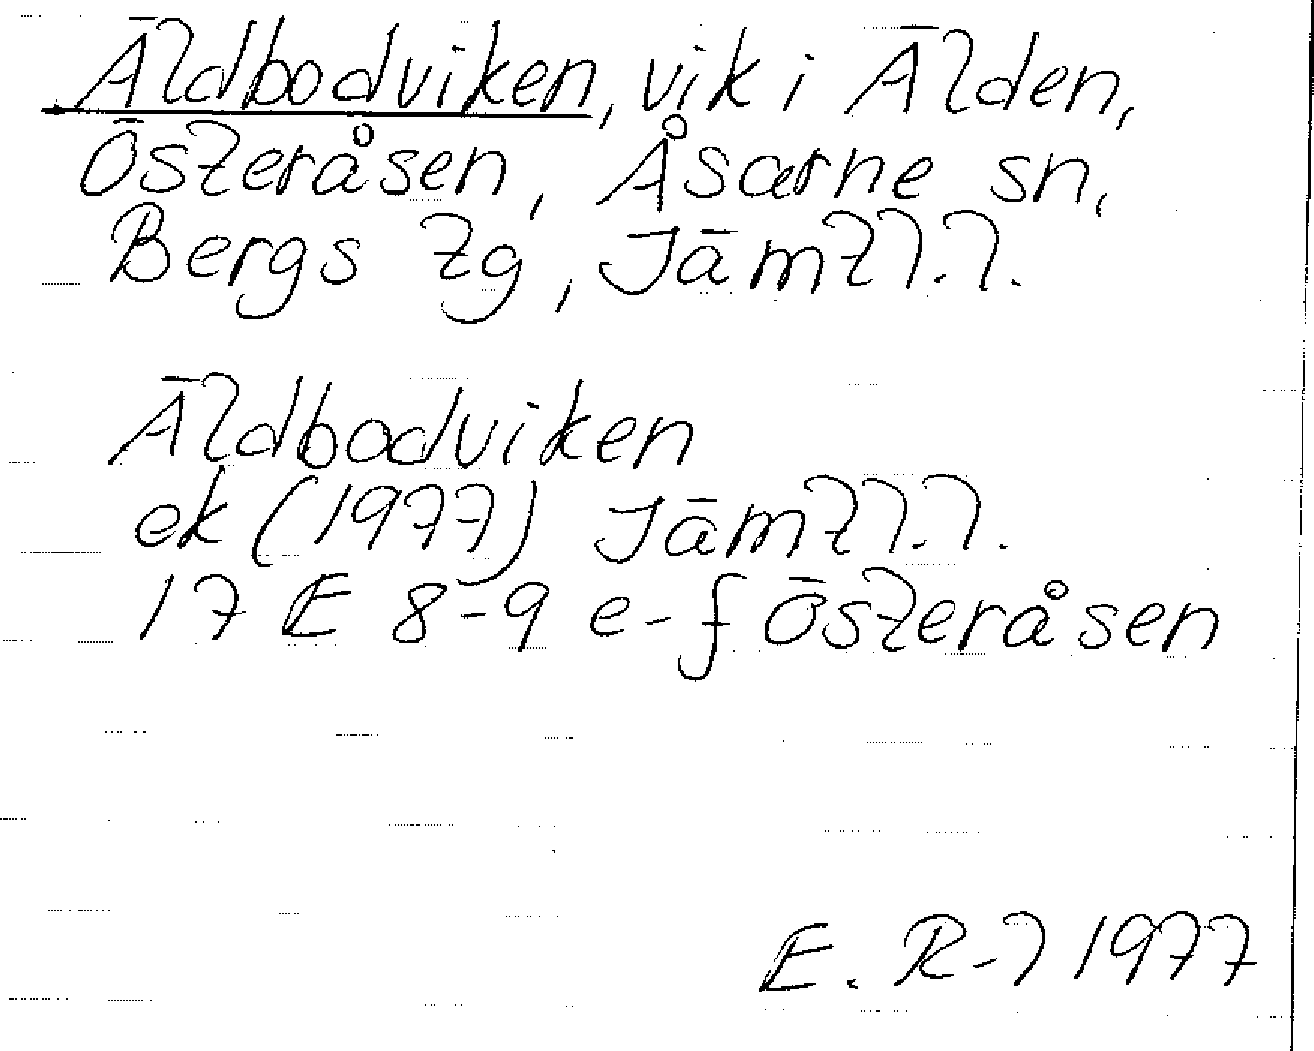 Äldbodviken, vik i Älden,
Österåsen, Åsarne sn,
Bergs tg, Jämtl.l.
Äldbodviken
ek (1977) Jämtl.l.
17 E 8-9 e-f Österåsen
E. R-l 1977